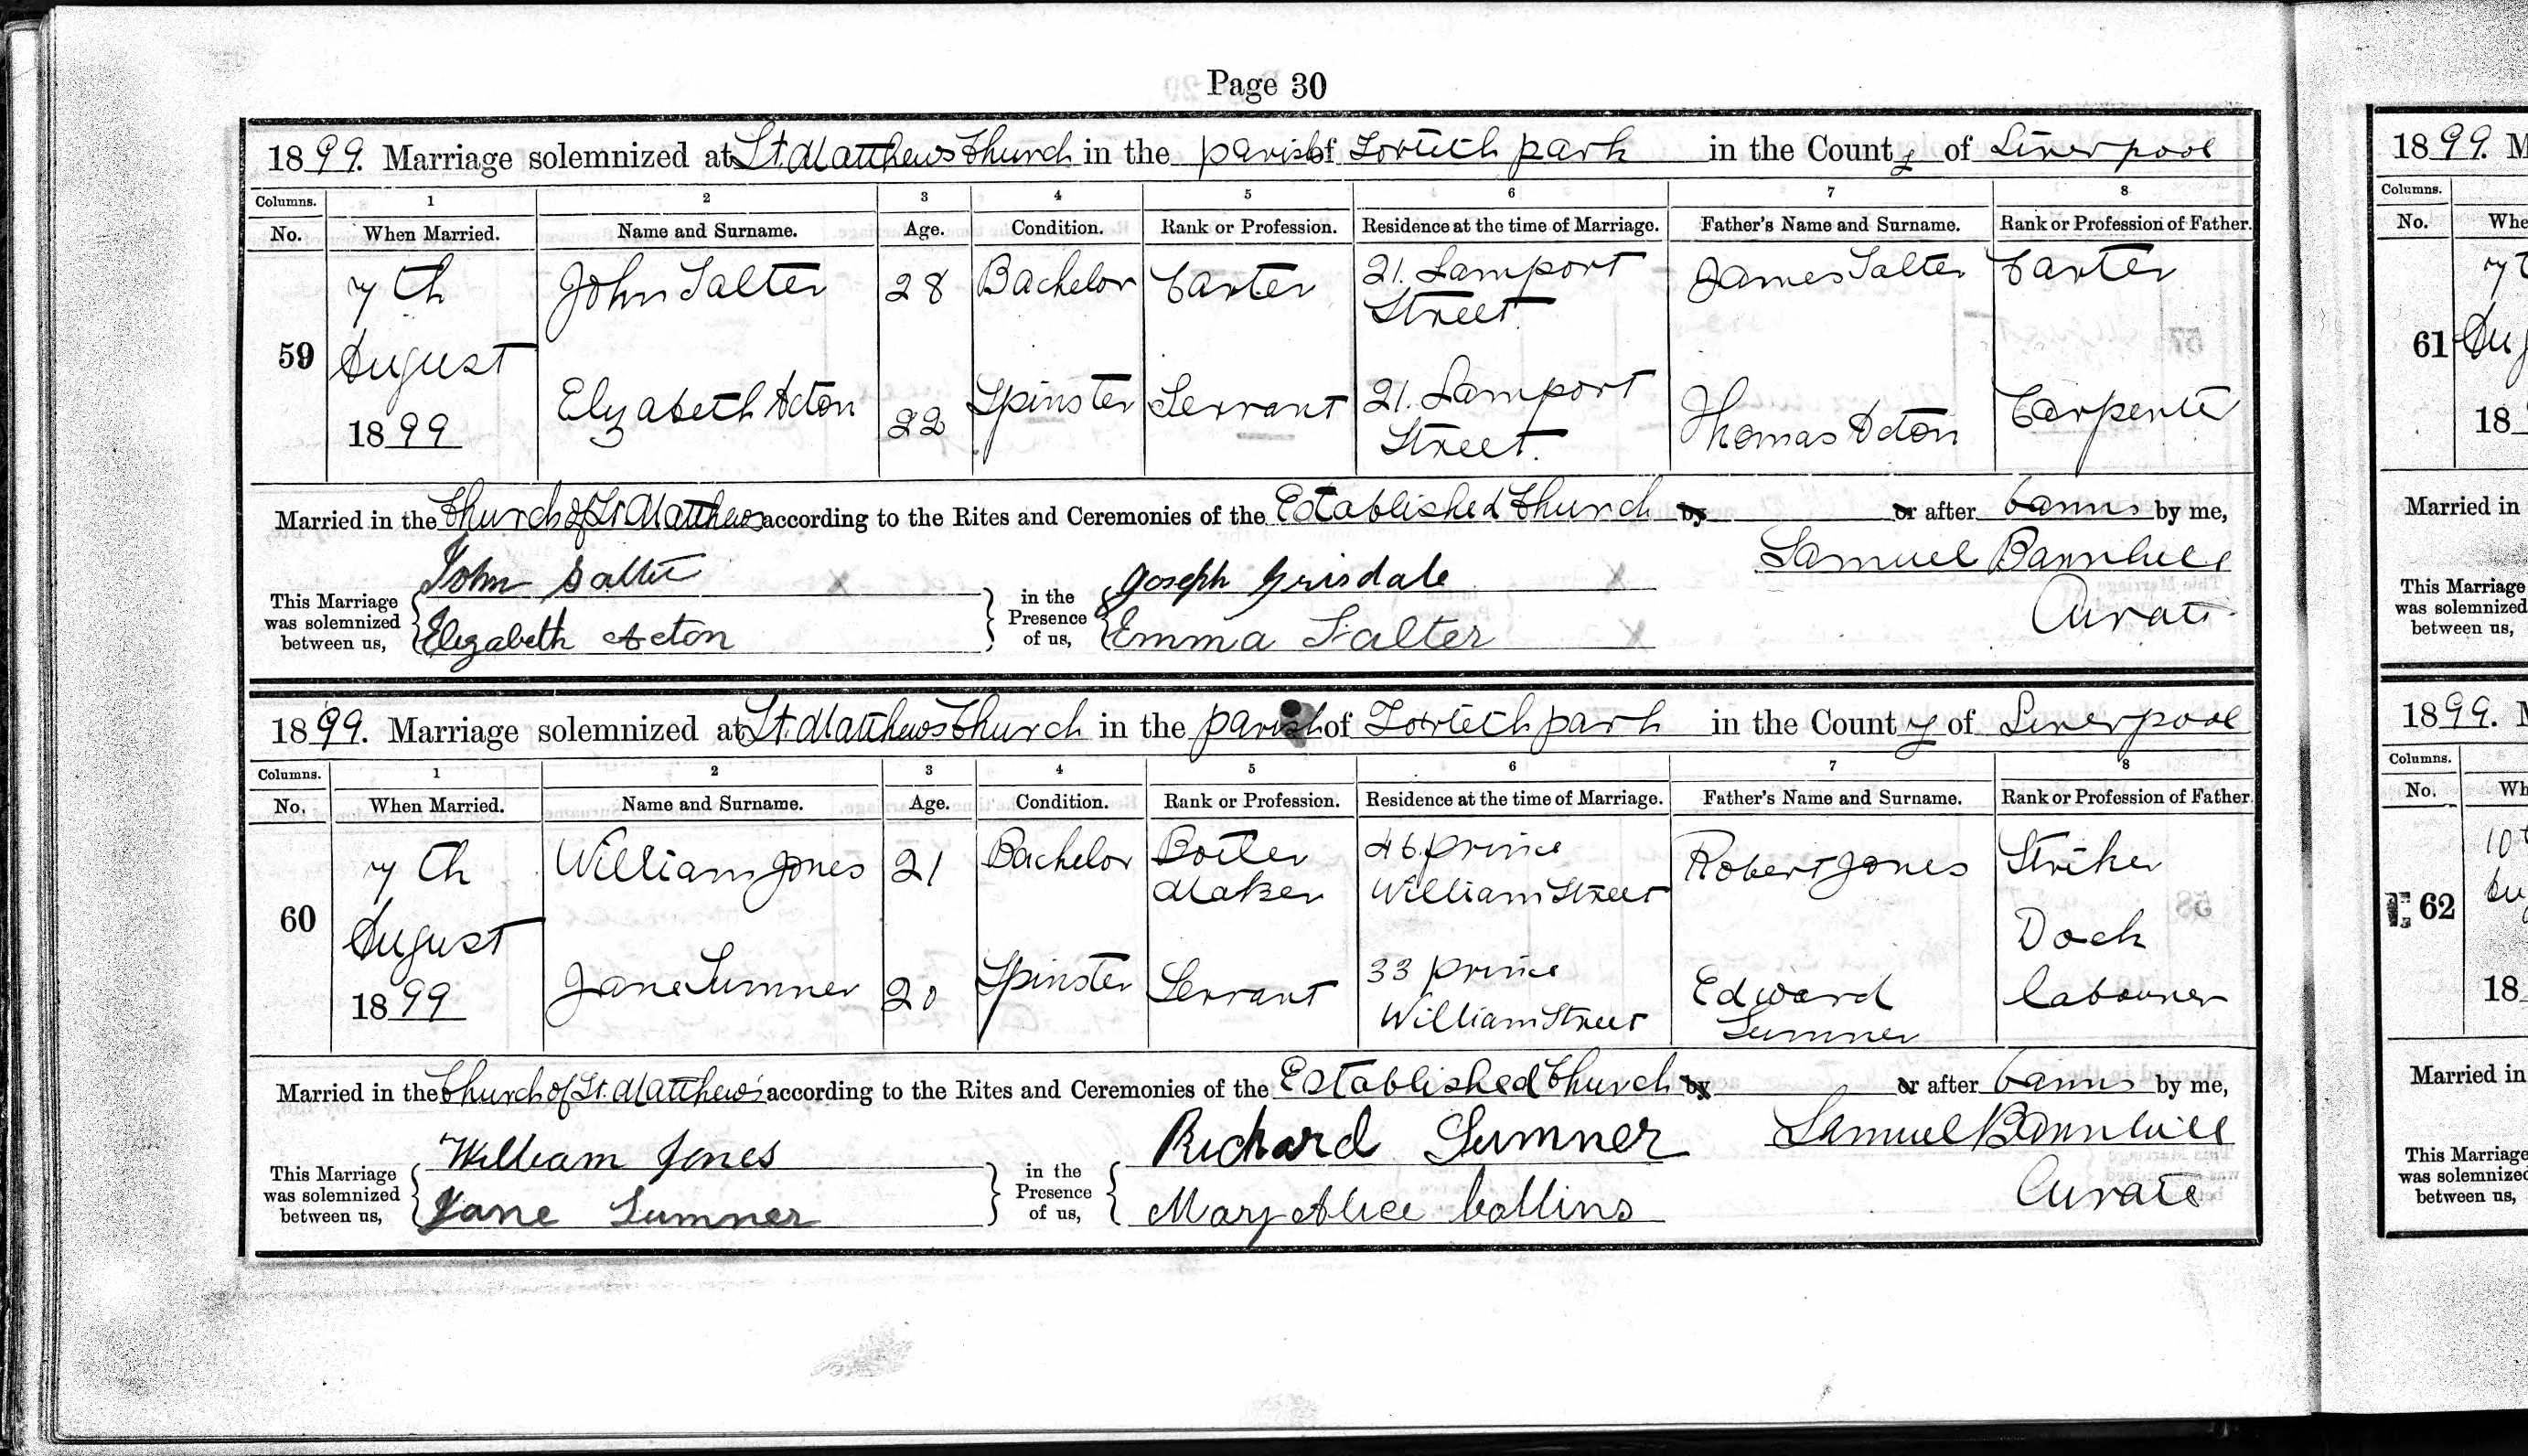 Page 30
1899. Marriage solemnized at St. Matthews Church in the parish of Toxteth park in the County of Liverpool
Columns. 1 2 3 4 5 6 7 8
No. When Married. Name and Surname. Age. Condition. Rank or Profession. Residence at the time of Marriage. Father's Name and Surname. Rank or Profession of Father.
59 7th August 1899 John Salter 28 Bachelor Carter 21. Lamport Street James Salter Carter
Elizabeth Acton 22 Spinster Servant 21. Lamport Street. Thomas Acton Carpenter
Married in the Church of St Matthews according to the Rites and Ceremonies of the Established Church by or after banns by me,
This Marriage was solemnized between us, John Salter in the Presence of us, Joseph Grisdale Samuel
Elizabeth Acton Emma Salter Curate
1899. Marriage solemnized at St. Matthews Church in the parish of Toxteth park in the County of Liverpool
Columns. 1 2 3 4 5 6 7 8
No. When Married. Name and Surname. Age. Condition. Rank or Profession. Residence at the time of Marriage. Father's Name and Surname. Rank or Profession of Father.
60 7th August 1899 William Jones 21 Bachelor Boiler Maker 46 prince William Street Robert Jones Striker
Jane Sumner 20 Spinster Servant 33 prince William Street Edward Sumner Dock labourer
Married in the Church of St. Matthews according to the Rites and Ceremonies of the Established Church by or after banns by me,
This Marriage was solemnized between us, William Jones in the Presence of us, Richard Sumner Samuel
Jane Sumner Mary Alice Collins Curate
1899. M
Columns.
No. Whe
61
18
Married in
This Marriage
was solemnized
between us,
1899.
Columns.
No. Wh
62
18
Married in
This Marriage
was solemnized
between us,